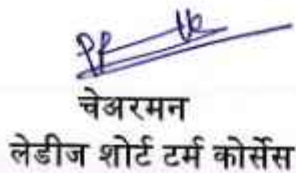 चेअरमन
लेडीज शोर्ट टर्म कोर्सेस